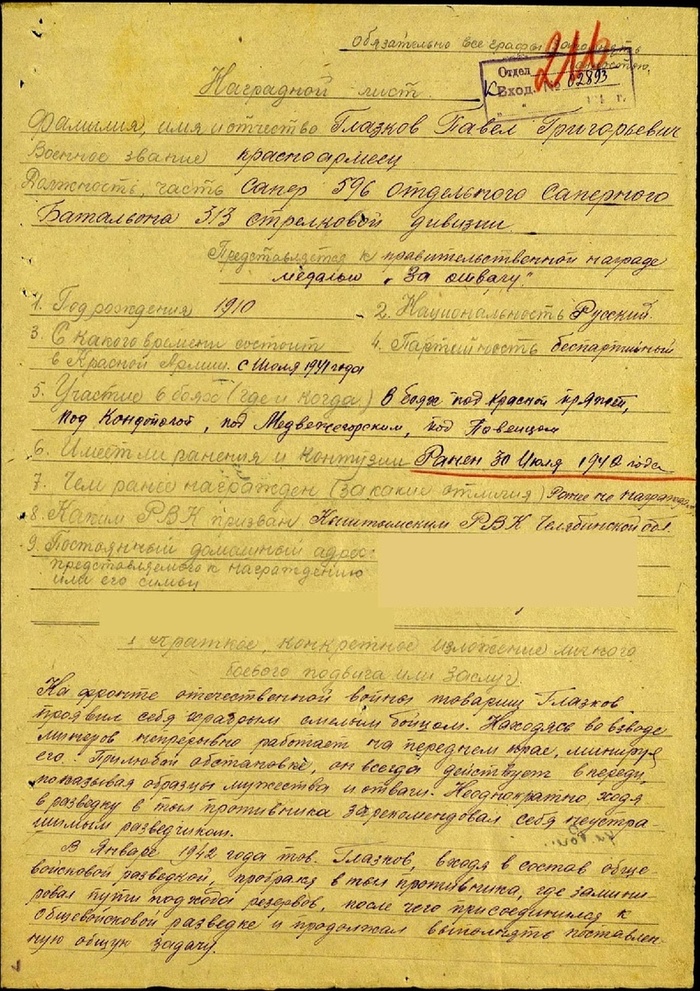 Обязательно все графы заполнять
216
Отдел
Вход. № 02893
г.
Наградной лист.
Фамилия, имя и отчество Глазков Павел Григорьевич
Военное звание красноармеец
Должность, часть Сапер 596 отдельного саперного
батальона 313 стрелковой дивизии.
Представляется к правительственной награде
медалью „За отвагу"
1. Год рождения 1910 - 2. Национальность Русский.
3. С какого времени состоит
в Красной Армии. с Июля 1941 года
4. Партийность беспартийный
5. Участие в боях (где и когда) в боях под Красной пряжей,
под Кондопогой, под Медвежегорским, под Повенцом
6. Имеет ли ранения и контузии Ранен 30 Июля 1942 года
7. Чем ранее награжден (за какие отличия) Ранее не награждался
8. Каким РВК призван Кыштымским РВК Челябинской обл
9. Постоянный домашний адрес
представляемого к награждению
или его семьи
1 Краткое, конкретное изложение личного
боевого подвига или заслуг.
На фронте отечественной войны товарищ Глазков
проявил себя храбрым смелым бойцом. Находясь во взводе
минеров непрерывно работает на переднем крае, минируя
его. При любой обстановке, он всегда действует впереди,
показывая образцы мужества и отваги. Неоднократно ходя
в разведку в тыл противника зарекомендовал себя неустра
шимым разведчиком.
В Январе 1942 года тов. Глазков, входя в состав обще-
войсковой разведкой, пробрался в тыл противника, где замини-
ровал пути подхода резервов после чего присоединился к
общевойсковой разведке и продолжал выполнять поставлен-
ную общую задачу.